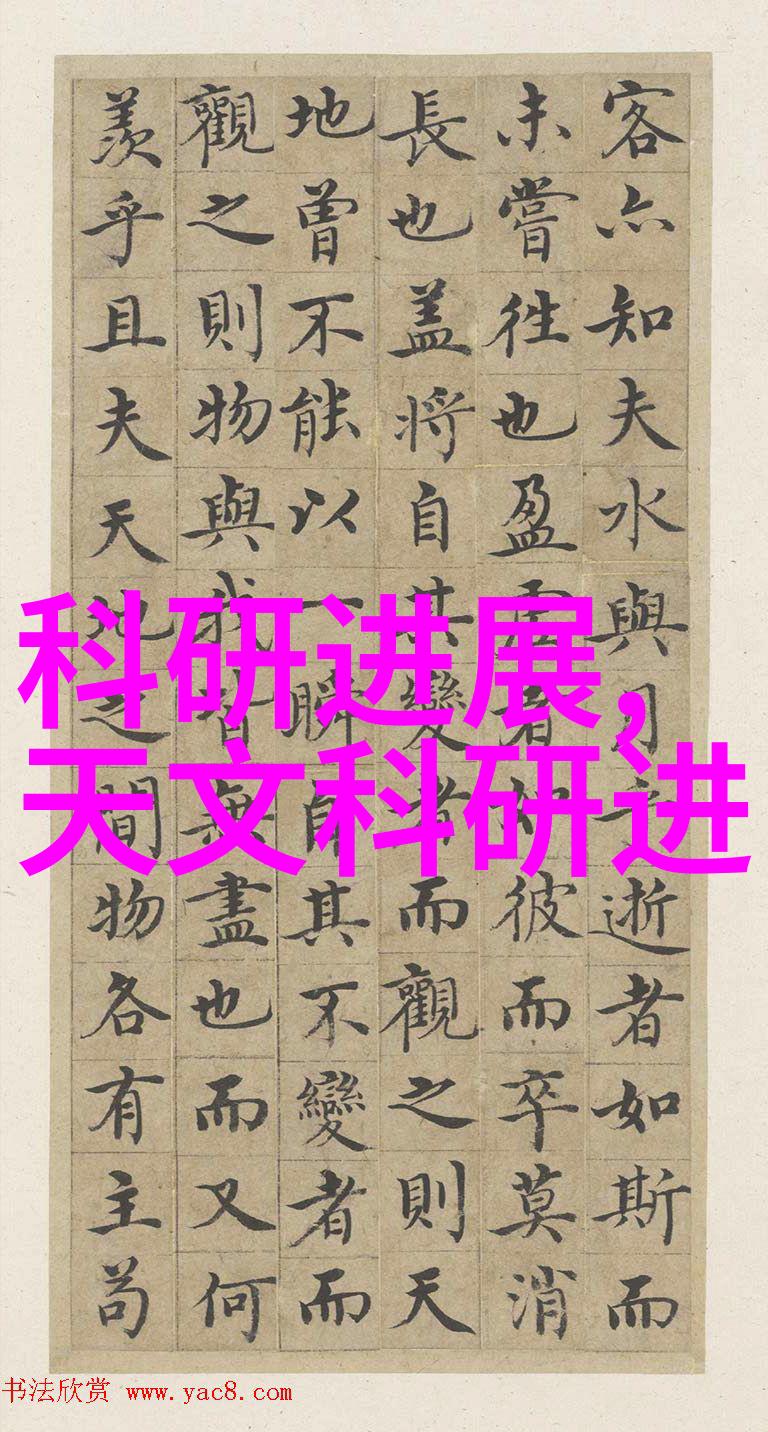 客亦知夫水與月乎逝者如斯而
未嘗往也盈虛者如彼而卒莫消
長也盖將自其變者而觀之則天
地曾不能以一瞬自其不變者而
觀之則物與我皆無盡也而又何
羨乎且夫天地之間物各有主苟
科研进展,
天文科研进
书法欣赏 www.yac8.com